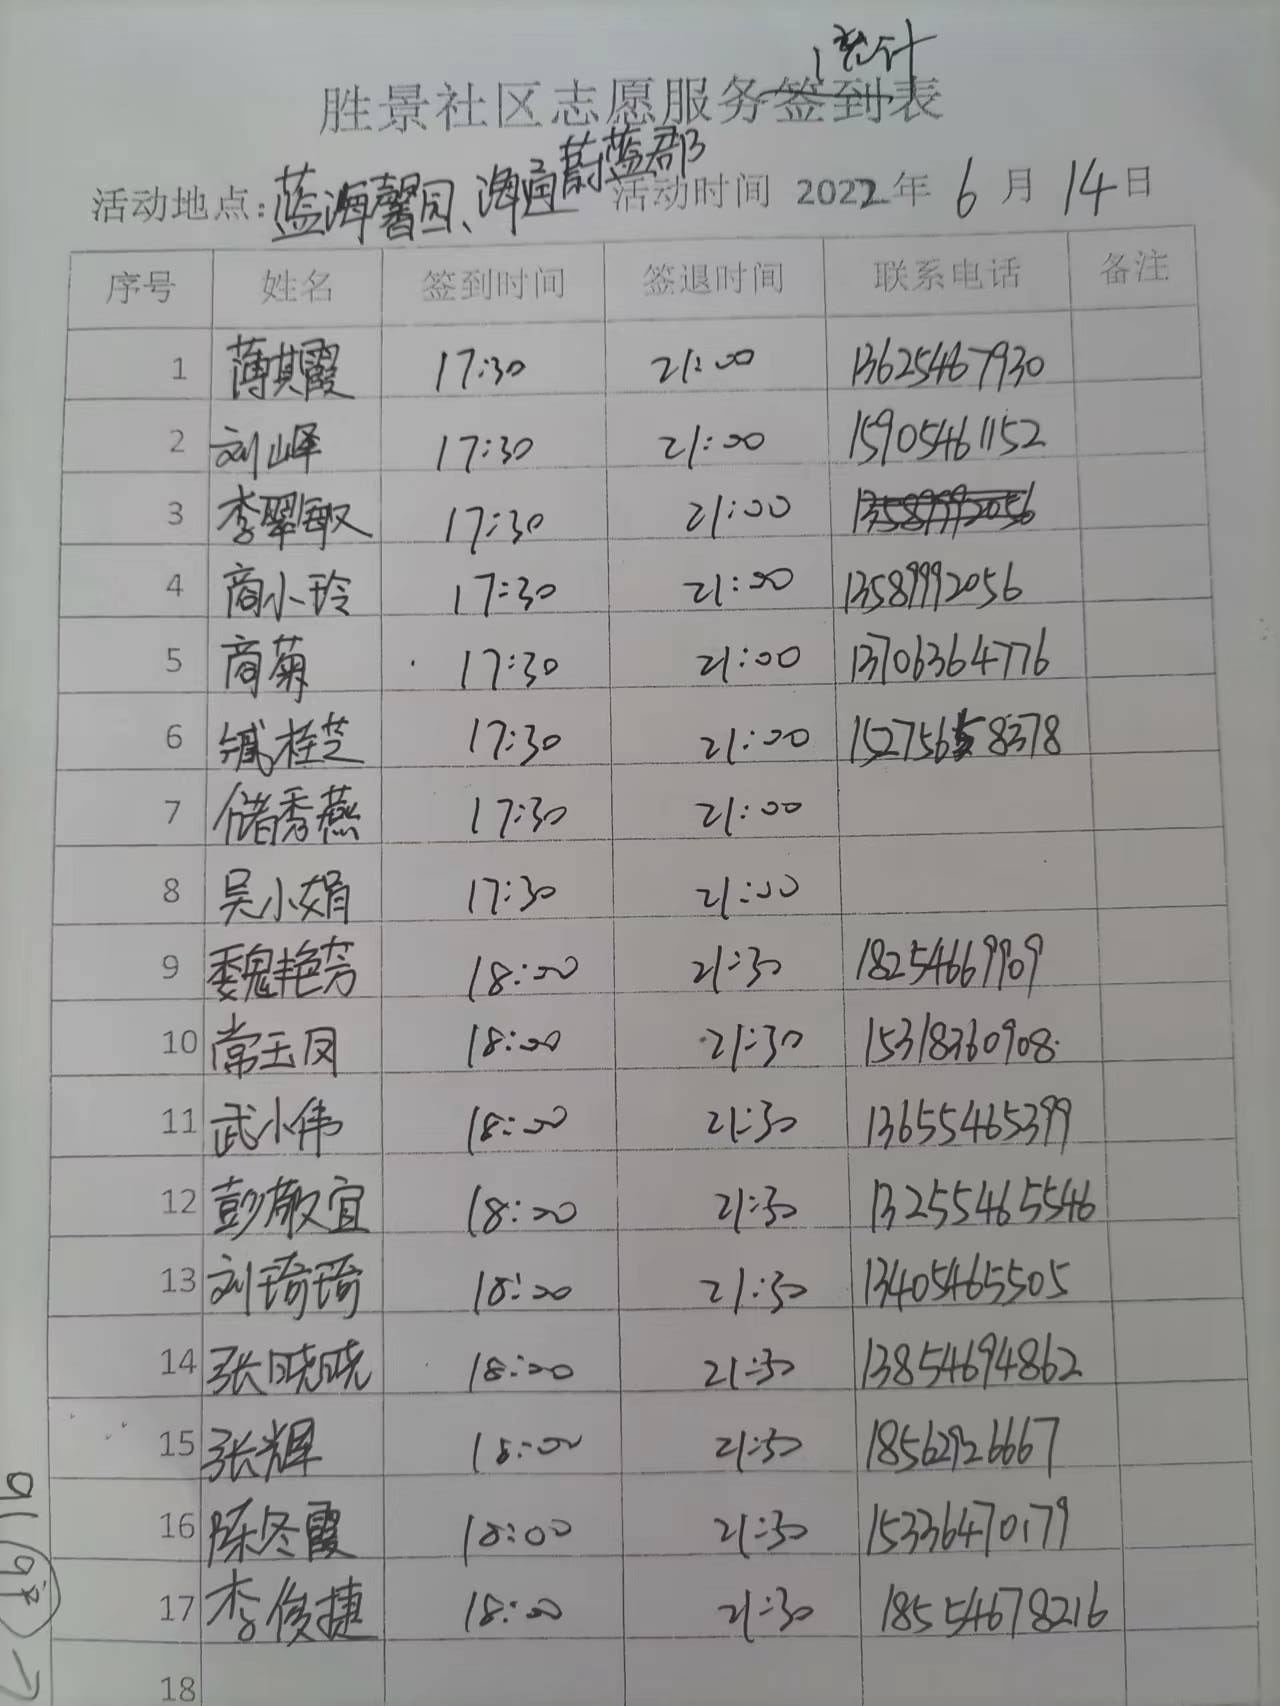 统计
胜景社区志愿服务签到表
活动地点:蓝海馨园、海通蔚蓝郡 活动时间 2022年 6 月 14 日
序号 姓名 签到时间 签退时间 联系电话 备注
1 薄其霞 17:30 21:00 13625467930
2 刘峰 17:30 21:00 15905461152
3 李翠敏 17:30 21:00 13589992056
4 商小玲 17:30 21:00 13589992056
5 商菊 17:30 21:00 13706364776
6 臧桂芝 17:30 21:00 15275658378
7 储秀燕 17:30 21:00
8 吴小娟 17:30 21:00
9 魏艳芳 18:00 21:30 18254669909
10 常玉凤 18:00 21:30 15318360908
11 武小伟 18:00 21:30 13655465399
12 彭敬宜 18:00 21:30 13255465546
13 刘琦琦 18:00 21:30 13405465505
14 张晓晓 18:00 21:30 13854694862
15 张辉 18:00 21:30 18562926667
16 陈冬霞 18:00 21:30 15336470179
17 李俊捷 18:00 21:30 18554678216
18